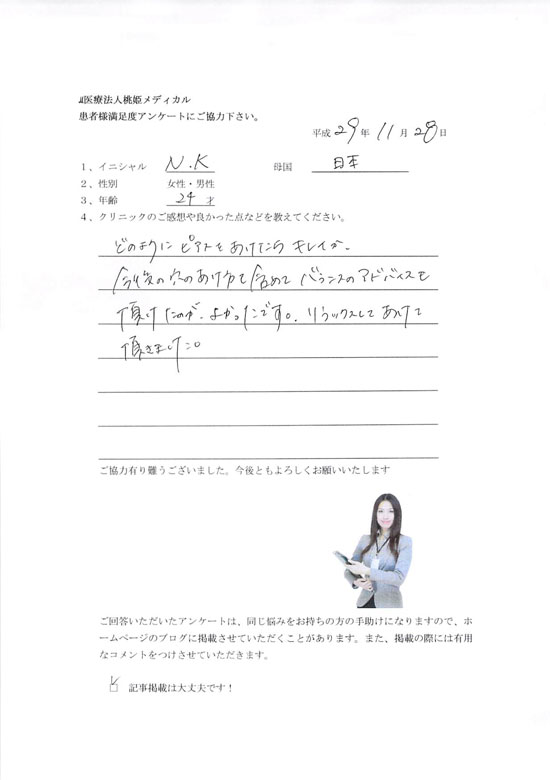 医療法人桃姫メディカル
患者様満足度アンケートにご協力下さい。
平成 29 年 11 月 28 日
1、イニシャル N.K 母国 日本
2、性別 女性・男性
3、年齢 24 才
4、クリニックのご感想や良かった点などを教えてください。
どのように ピアスをあけたら キレイか。
今後の穴のあけ方も含めて バランスのアドバイスを
頂けたのが、よかったです。リラックスして あけて
頂きました。
ご協力有り難うございました。今後ともよろしくお願いいたします
ご回答いただいたアンケートは、同じ悩みをお持ちの方の手助けになりますので、ホ
ームページのブログに掲載させていただくことがあります。また、掲載の際には有用
なコメントをつけさせていただきます。
記事掲載は大丈夫です！